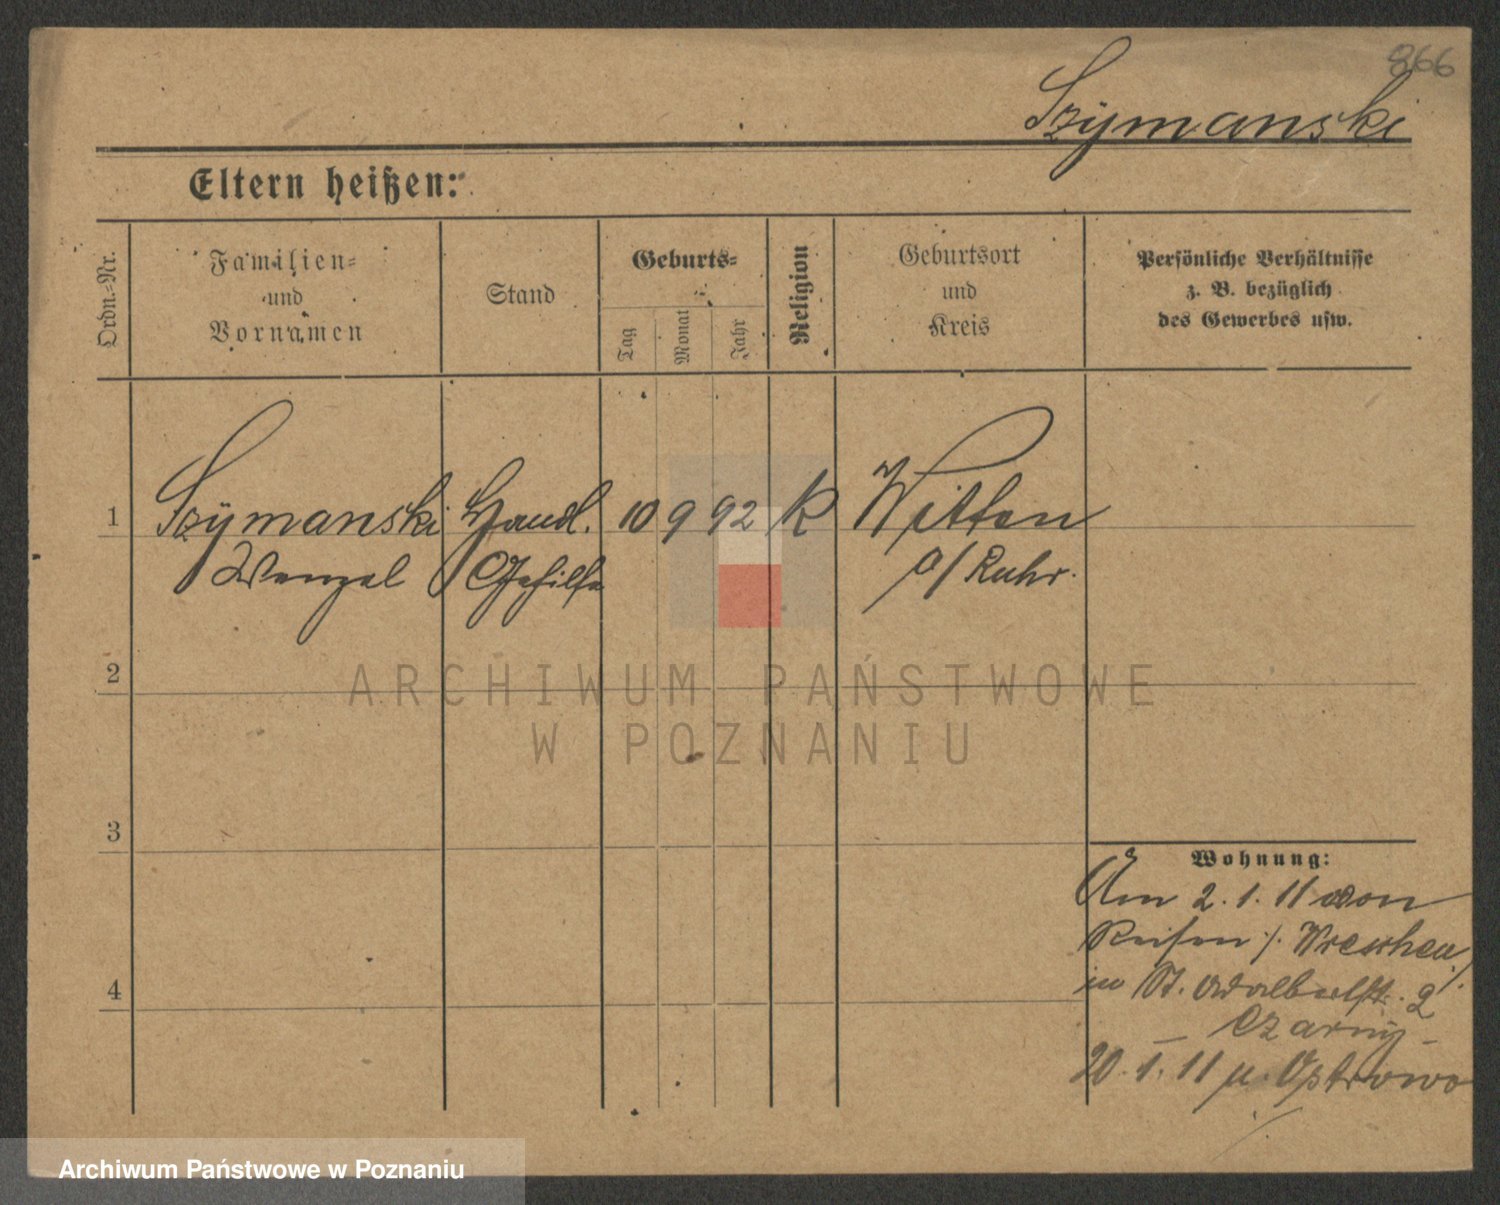 866
Szymanski
Eltern heißen:
Ordn.-Nr.
Familien-
und
Vornamen
Stand
Geburts-
Tag
Monat
Jahr
Religion
Geburtsort
und
Kreis
Persönliche Verhältnisse
z. B. bezüglich
des Gewerbes usw.
1 Szymanski Handl. 10 9 92 K Witten
Wenzel Gehilfe a/Ruhr.
2
3
4
Wohnung:
Am 2. 1. 11 von
Reisen /. Wreschen /.
in St. Adalbertstr. 2
Czarny
20. 1. 11 n. Ostrowo
ARCHIWUM PAŃSTWOWE
W POZNANIU
Archiwum Państwowe w Poznaniu